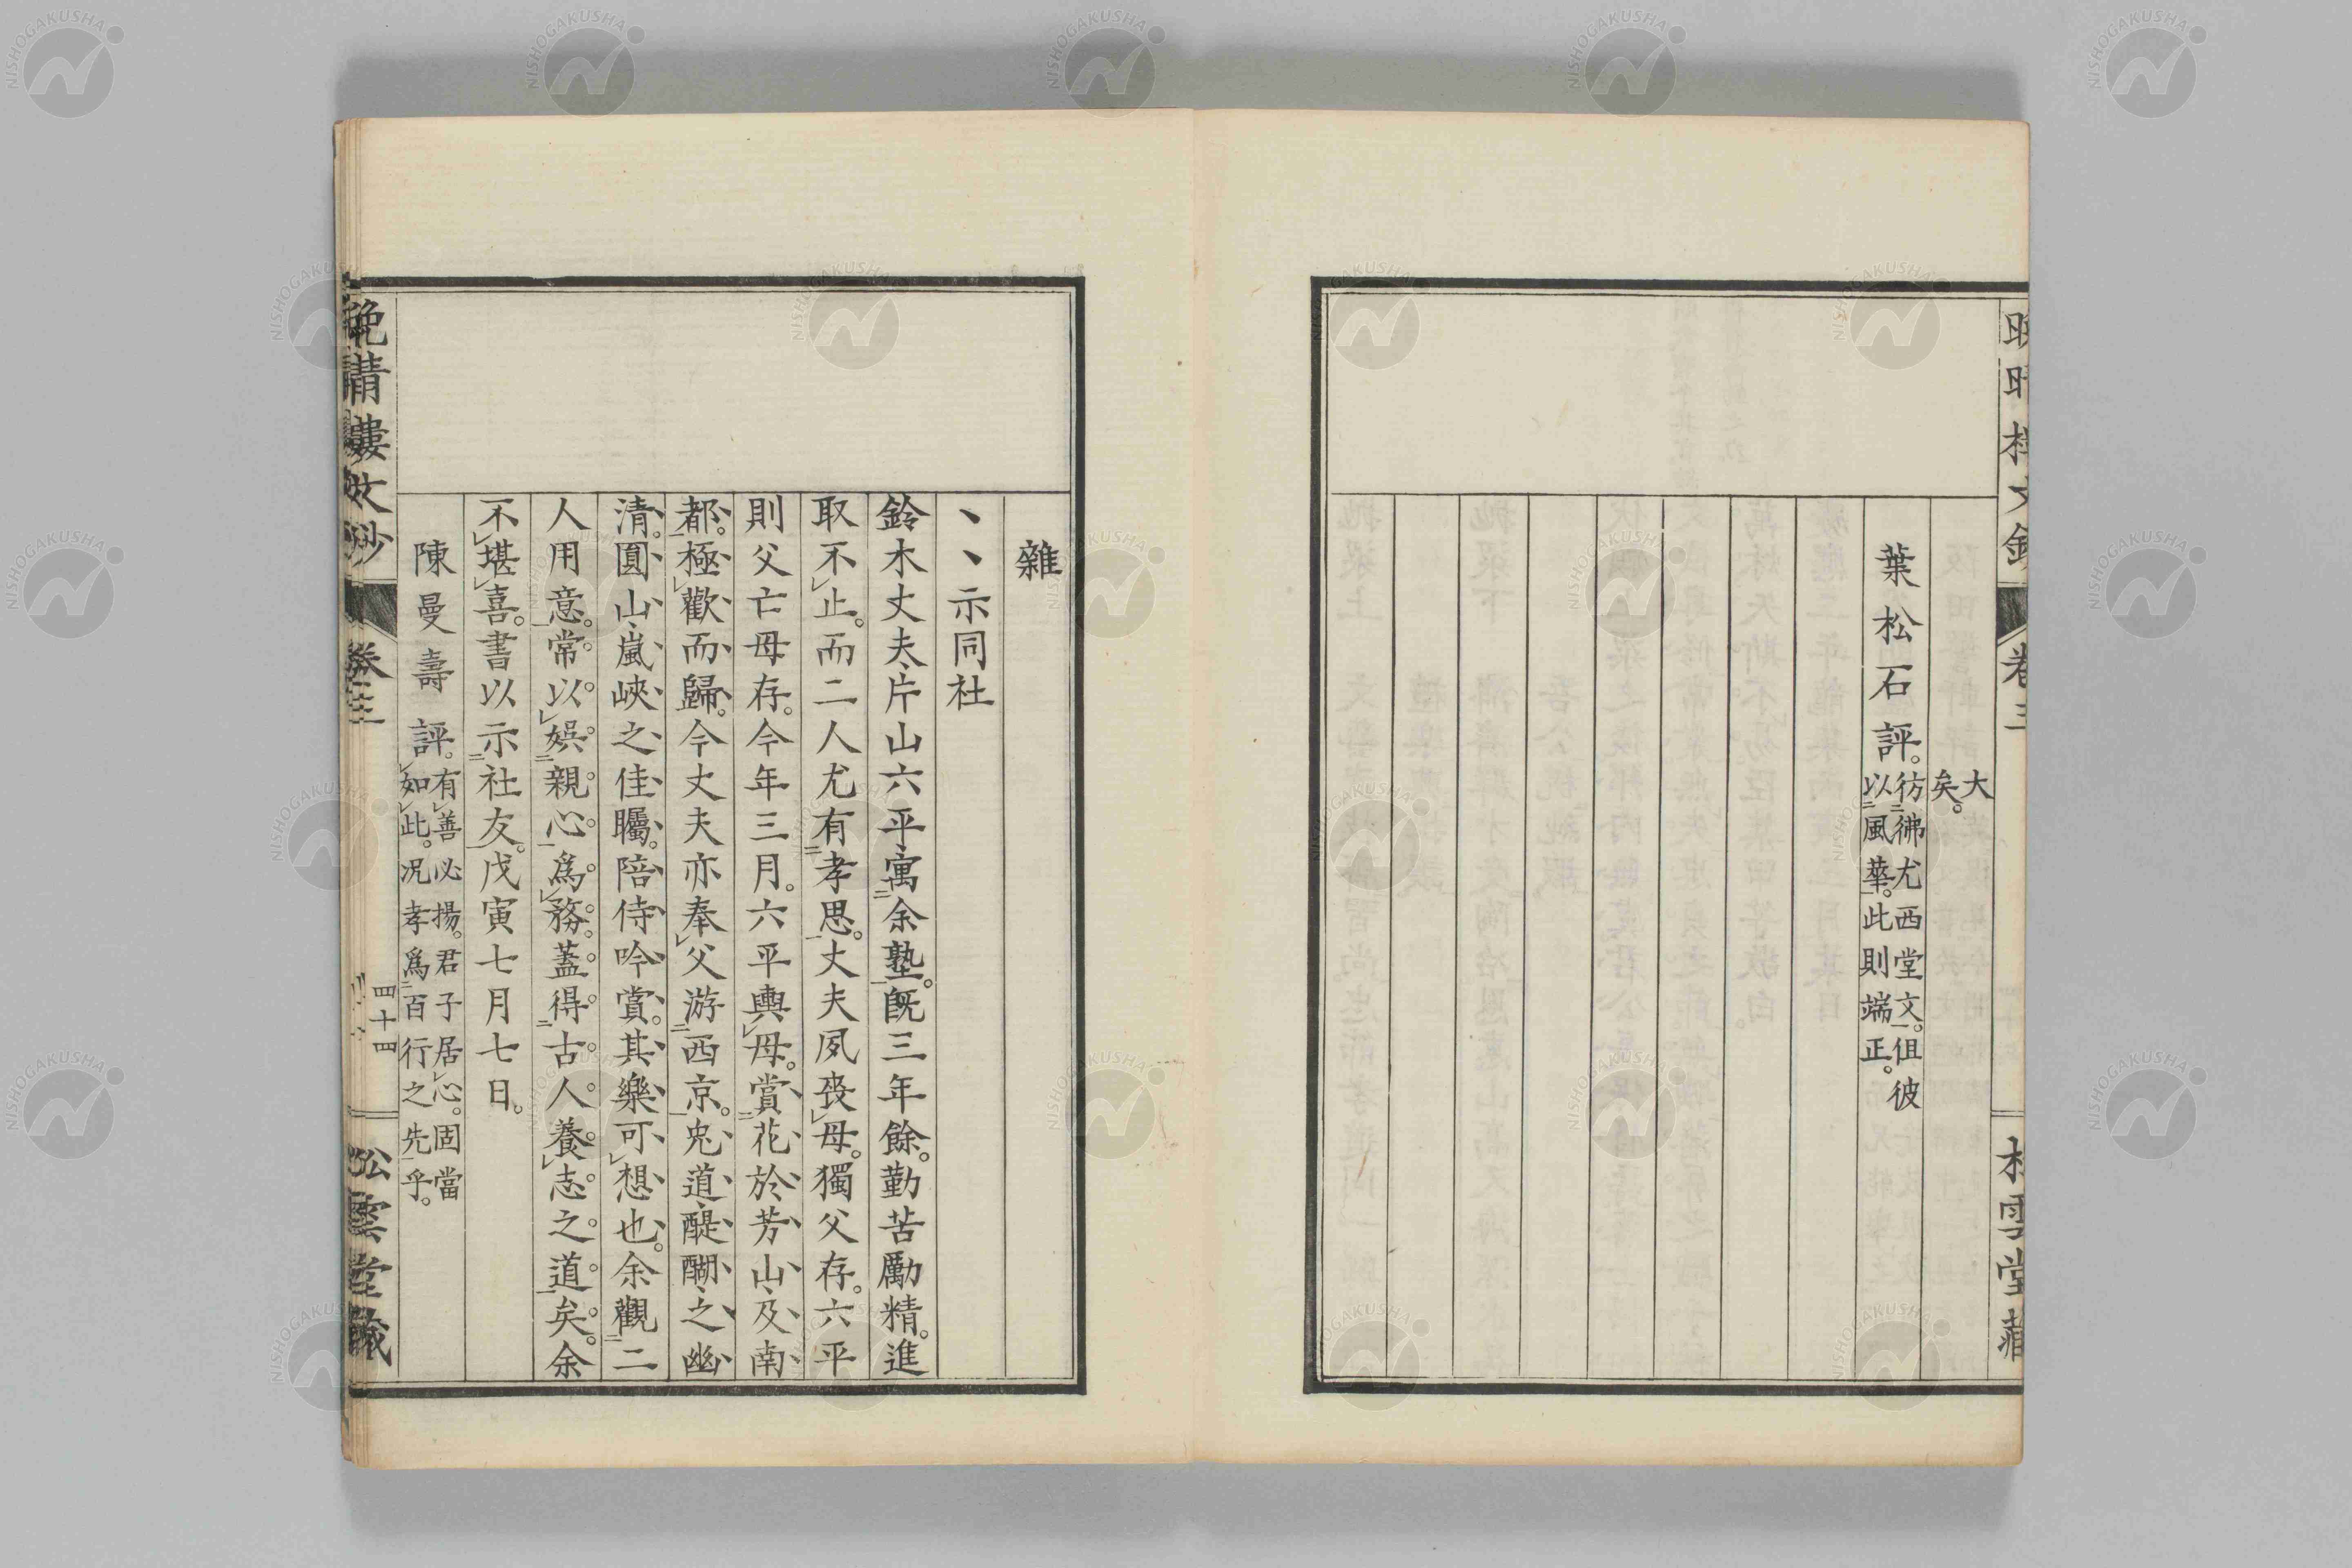 大
矣。
葉松石評。彷彿尤西堂文。但彼
以風華。此則端正。
雜
丶丶示同社
鈴木丈夫片山六平寓余塾。既三年餘。勤苦勵精。進
取不止。而二人尤有孝思。丈夫夙喪母。獨父存。六平
則父亡母存。今年三月。六平輿母。賞花於芳山及南
都。極歡而歸。今丈夫亦奉父游西京。兎道醍醐之幽
清。圓山嵐峽之佳矚。陪侍吟賞。其樂可想也。余觀二
人用意。常以娯親心爲務。蓋得古人養志之道矣。余
不堪喜。書以示社友。戊寅七月七日。
陳曼壽評。有善必揚。君子居心。固當
如此。况孝爲百行之先乎。
晩晴樓文鈔
卷三
四十四
松雲堂藏
NISHOGAKUSHA